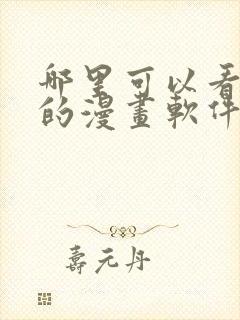 哪里可以看
的漫畫軟件
壽元丹